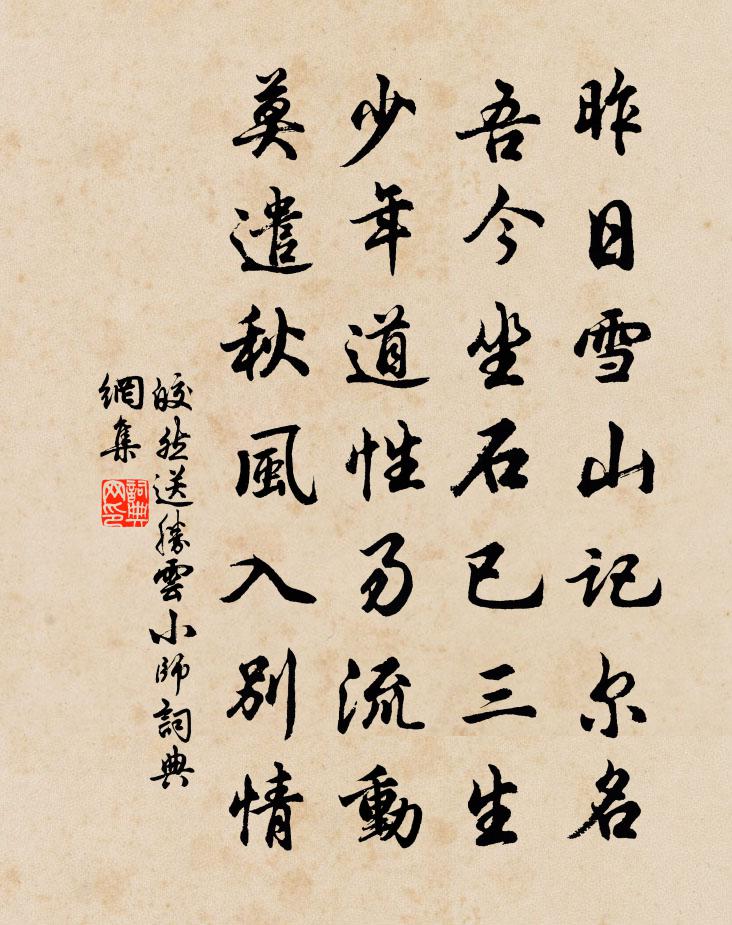 昨日雪山记尔名
吾今坐石已三生
少年道性易流動
莫遣秋風入别情
皎然送勝雲小師詞典
網集
詞典
网印